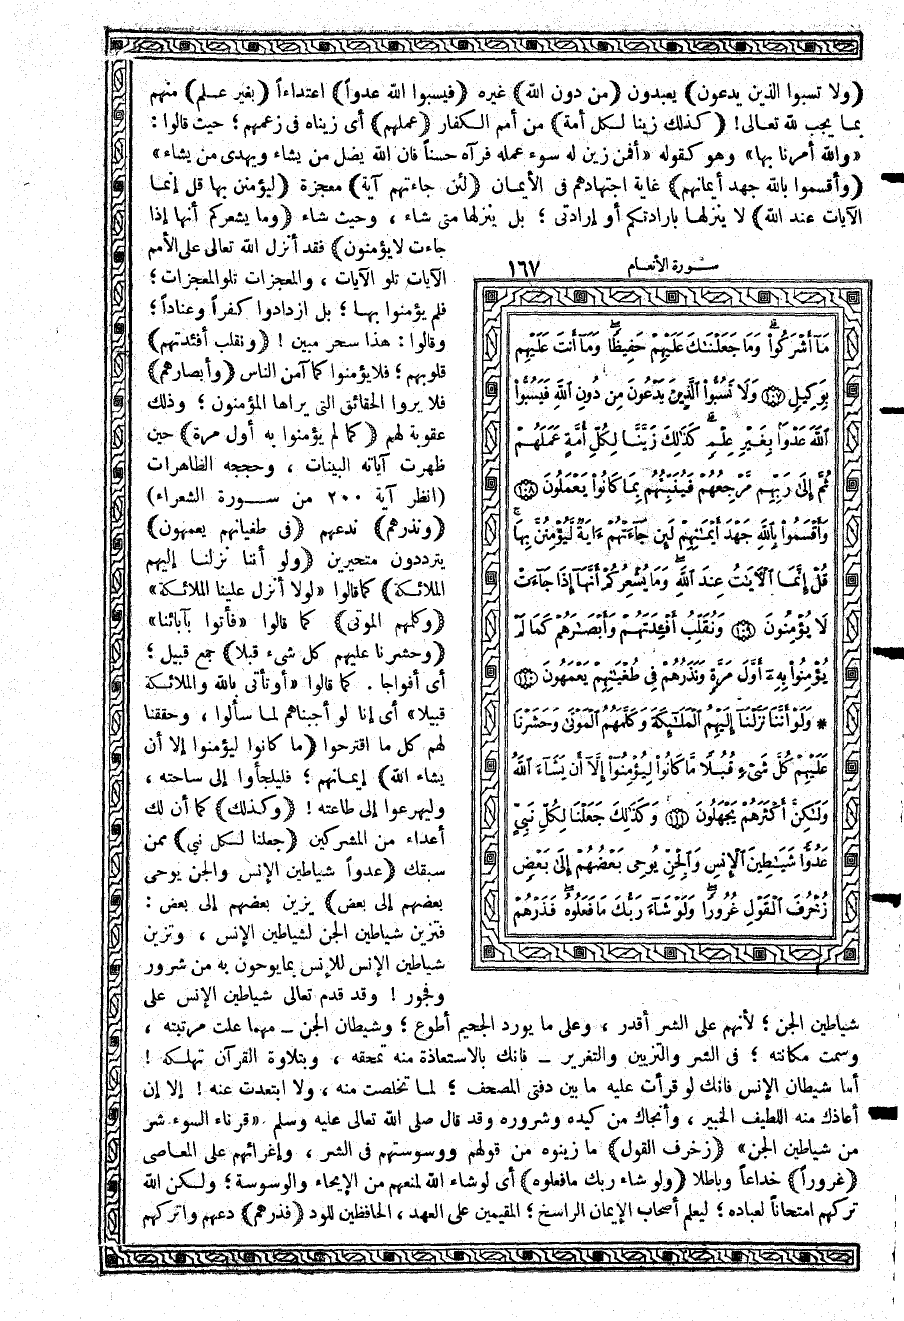 ﴿ولا تسبوا الذين يدعون﴾ يعبدون ﴿من دون الله﴾ غيره ﴿فيسبوا الله عدواً﴾ اعتداءاً ﴿بغير علم﴾ منهم
بما يجب لله تعالى! ﴿كذلك زينا لكل أمة﴾ من أمم الكفار ﴿عملهم﴾ أى زيناه فى زعمهم؛ حيث قالوا:
«والله أمرنا بها» وهو كقوله «أفمن زين له سوء عمله فرآه حسناً فان الله يضل من يشاء ويهدى من يشاء»
﴿وأقسموا بالله جهد أيمانهم﴾ غاية اجتهادهم فى الأيمان ﴿لئن جاءتهم آية﴾ معجزة ﴿ليؤمنن بها قل إنما
الآيات عند الله﴾ لا ينزلها بارادتكم أو إرادتى؛ بل ينزلها متى شاء، وحيث شاء ﴿وما يشعركم أنها إذا
جاءت لا يؤمنون﴾ فقد أنزل الله تعالى على الأمم
الآيات تلو الآيات، والمعجزات تلو المعجزات؛
فلم يؤمنوا بها؛ بل ازدادوا كفراً وعناداً؛
وقالوا: هذا سحر مبين! ﴿ونقلب أفئدتهم﴾
قلوبهم؛ فلا يؤمنوا كما آمن الناس ﴿وأبصارهم﴾
فلا يروا الحقائق التى يراها المؤمنون؛ وذلك
عقوبة لهم ﴿كما لم يؤمنوا به أول مرة﴾ حين
ظهرت آياته البينات، وحججه الظاهرات
(انظر آية ٢٠٠ من سورة الشعراء)
﴿ونذرهم﴾ ندعهم ﴿فى طغيانهم يعمهون﴾
يترددون متحيرين ﴿ولو أننا نزلنا إليهم
الملائكة﴾ كما قالوا «لولا أنزل علينا الملائكة»
﴿وكلمهم الموتى﴾ كما قالوا «فأتوا بآبائنا»
﴿وحشرنا عليهم كل شىء قبلا﴾ جمع قبيل؛
أى أفواجا. كما قالوا «أو تأتى بالله والملائكة
قبيلا» أى إنا لو أجبناهم لما سألوا، وحققنا
لهم كل ما اقترحوا ﴿ما كانوا ليؤمنوا إلا أن
يشاء الله﴾ إيمانهم؛ فليلجأوا إلى ساحته،
وليهرعوا إلى طاعته! ﴿وكذلك﴾ كما أن لك
أعداء من المشركين ﴿جعلنا لكل نبى﴾ ممن
سبقك ﴿عدواً شياطين الإنس والجن يوحى
بعضهم إلى بعض﴾ يزين بعضهم إلى بعض:
فتزين شياطين الجن لشياطين الإنس، وتزين
شياطين الإنس للإنس بما يوحون به من شرور
وفجور! وقد قدم تعالى شياطين الإنس على
شياطين الجن؛ لأنهم على الشر أقدر، وعلى ما يورد الجحيم أطوع؛ وشيطان الجن ــ مهما علت مرتبته،
وسمت مكانته؛ فى الشر والتزيين والتغرير ــ فانك بالاستعاذة منه تمحقه، وبتلاوة القرآن تهلكه!
أما شيطان الإنس فانك لو قرأت عليه ما بين دفتى المصحف؛ لما تخلصت منه، ولا ابتعدت عنه! إلا إن
أعاذك منه اللطيف الخبير، وأنجاك من كيده وشروره وقد قال صلى الله تعالى عليه وسلم «قرناء السوء شر
من شياطين الجن» ﴿زخرف القول﴾ ما زينوه من قولهم ووسوستهم فى الشر، وإغرائهم على المعاصى
﴿غروراً﴾ خداعاً وباطلا ﴿ولو شاء ربك ما فعلوه﴾ أى لو شاء الله لمنعهم من الإيحاء والوسوسة؛ ولكن الله
تركهم امتحاناً لعباده؛ ليعلم أصحاب الإيمان الراسخ؛ المقيمين على العهد، الحافظين للود ﴿فذرهم﴾ دعهم واتركهم
سورة الأنعام ١٦٧
مَآ أَشۡرَكُواْۗ وَمَا جَعَلۡنَٰكَ عَلَيۡهِمۡ حَفِيظٗاۖ وَمَآ أَنتَ عَلَيۡهِم
بِوَكِيلٖ ١٠٧ وَلَا تَسُبُّواْ ٱلَّذِينَ يَدۡعُونَ مِن دُونِ ٱللَّهِ فَيَسُبُّواْ
ٱللَّهَ عَدۡوَۢا بِغَيۡرِ عِلۡمٖۗ كَذَٰلِكَ زَيَّنَّا لِكُلِّ أُمَّةٍ عَمَلَهُمۡ
ثُمَّ إِلَىٰ رَبِّهِم مَّرۡجِعُهُمۡ فَيُنَبِّئُهُم بِمَا كَانُواْ يَعۡمَلُونَ ١٠٨
وَأَقۡسَمُواْ بِٱللَّهِ جَهۡدَ أَيۡمَٰنِهِمۡ لَئِن جَآءَتۡهُمۡ ءَايَةٞ لَّيُؤۡمِنُنَّ بِهَاۚ
قُلۡ إِنَّمَا ٱلۡأٓيَٰتُ عِندَ ٱللَّهِۖ وَمَا يُشۡعِرُكُمۡ أَنَّهَآ إِذَا جَآءَتۡ
لَا يُؤۡمِنُونَ ١٠٩ وَنُقَلِّبُ أَفۡـِٔدَتَهُمۡ وَأَبۡصَٰرَهُمۡ كَمَا لَمۡ
يُؤۡمِنُواْ بِهِۦٓ أَوَّلَ مَرَّةٖ وَنَذَرُهُمۡ فِي طُغۡيَٰنِهِمۡ يَعۡمَهُونَ ١١٠
* وَلَوۡ أَنَّنَا نَزَّلۡنَآ إِلَيۡهِمُ ٱلۡمَلَٰٓئِكَةَ وَكَلَّمَهُمُ ٱلۡمَوۡتَىٰ وَحَشَرۡنَا
عَلَيۡهِمۡ كُلَّ شَيۡءٖ قُبُلٗا مَّا كَانُواْ لِيُؤۡمِنُوٓاْ إِلَّآ أَن يَشَآءَ ٱللَّهُ
وَلَٰكِنَّ أَكۡثَرَهُمۡ يَجۡهَلُونَ ١١١ وَكَذَٰلِكَ جَعَلۡنَا لِكُلِّ نَبِيٍّ
عَدُوّٗا شَيَٰطِينَ ٱلۡإِنسِ وَٱلۡجِنِّ يُوحِي بَعۡضُهُمۡ إِلَىٰ بَعۡضٖ
زُخۡرُفَ ٱلۡقَوۡلِ غُرُورٗاۚ وَلَوۡ شَآءَ رَبُّكَ مَا فَعَلُوهُۖ فَذَرۡهُمۡ